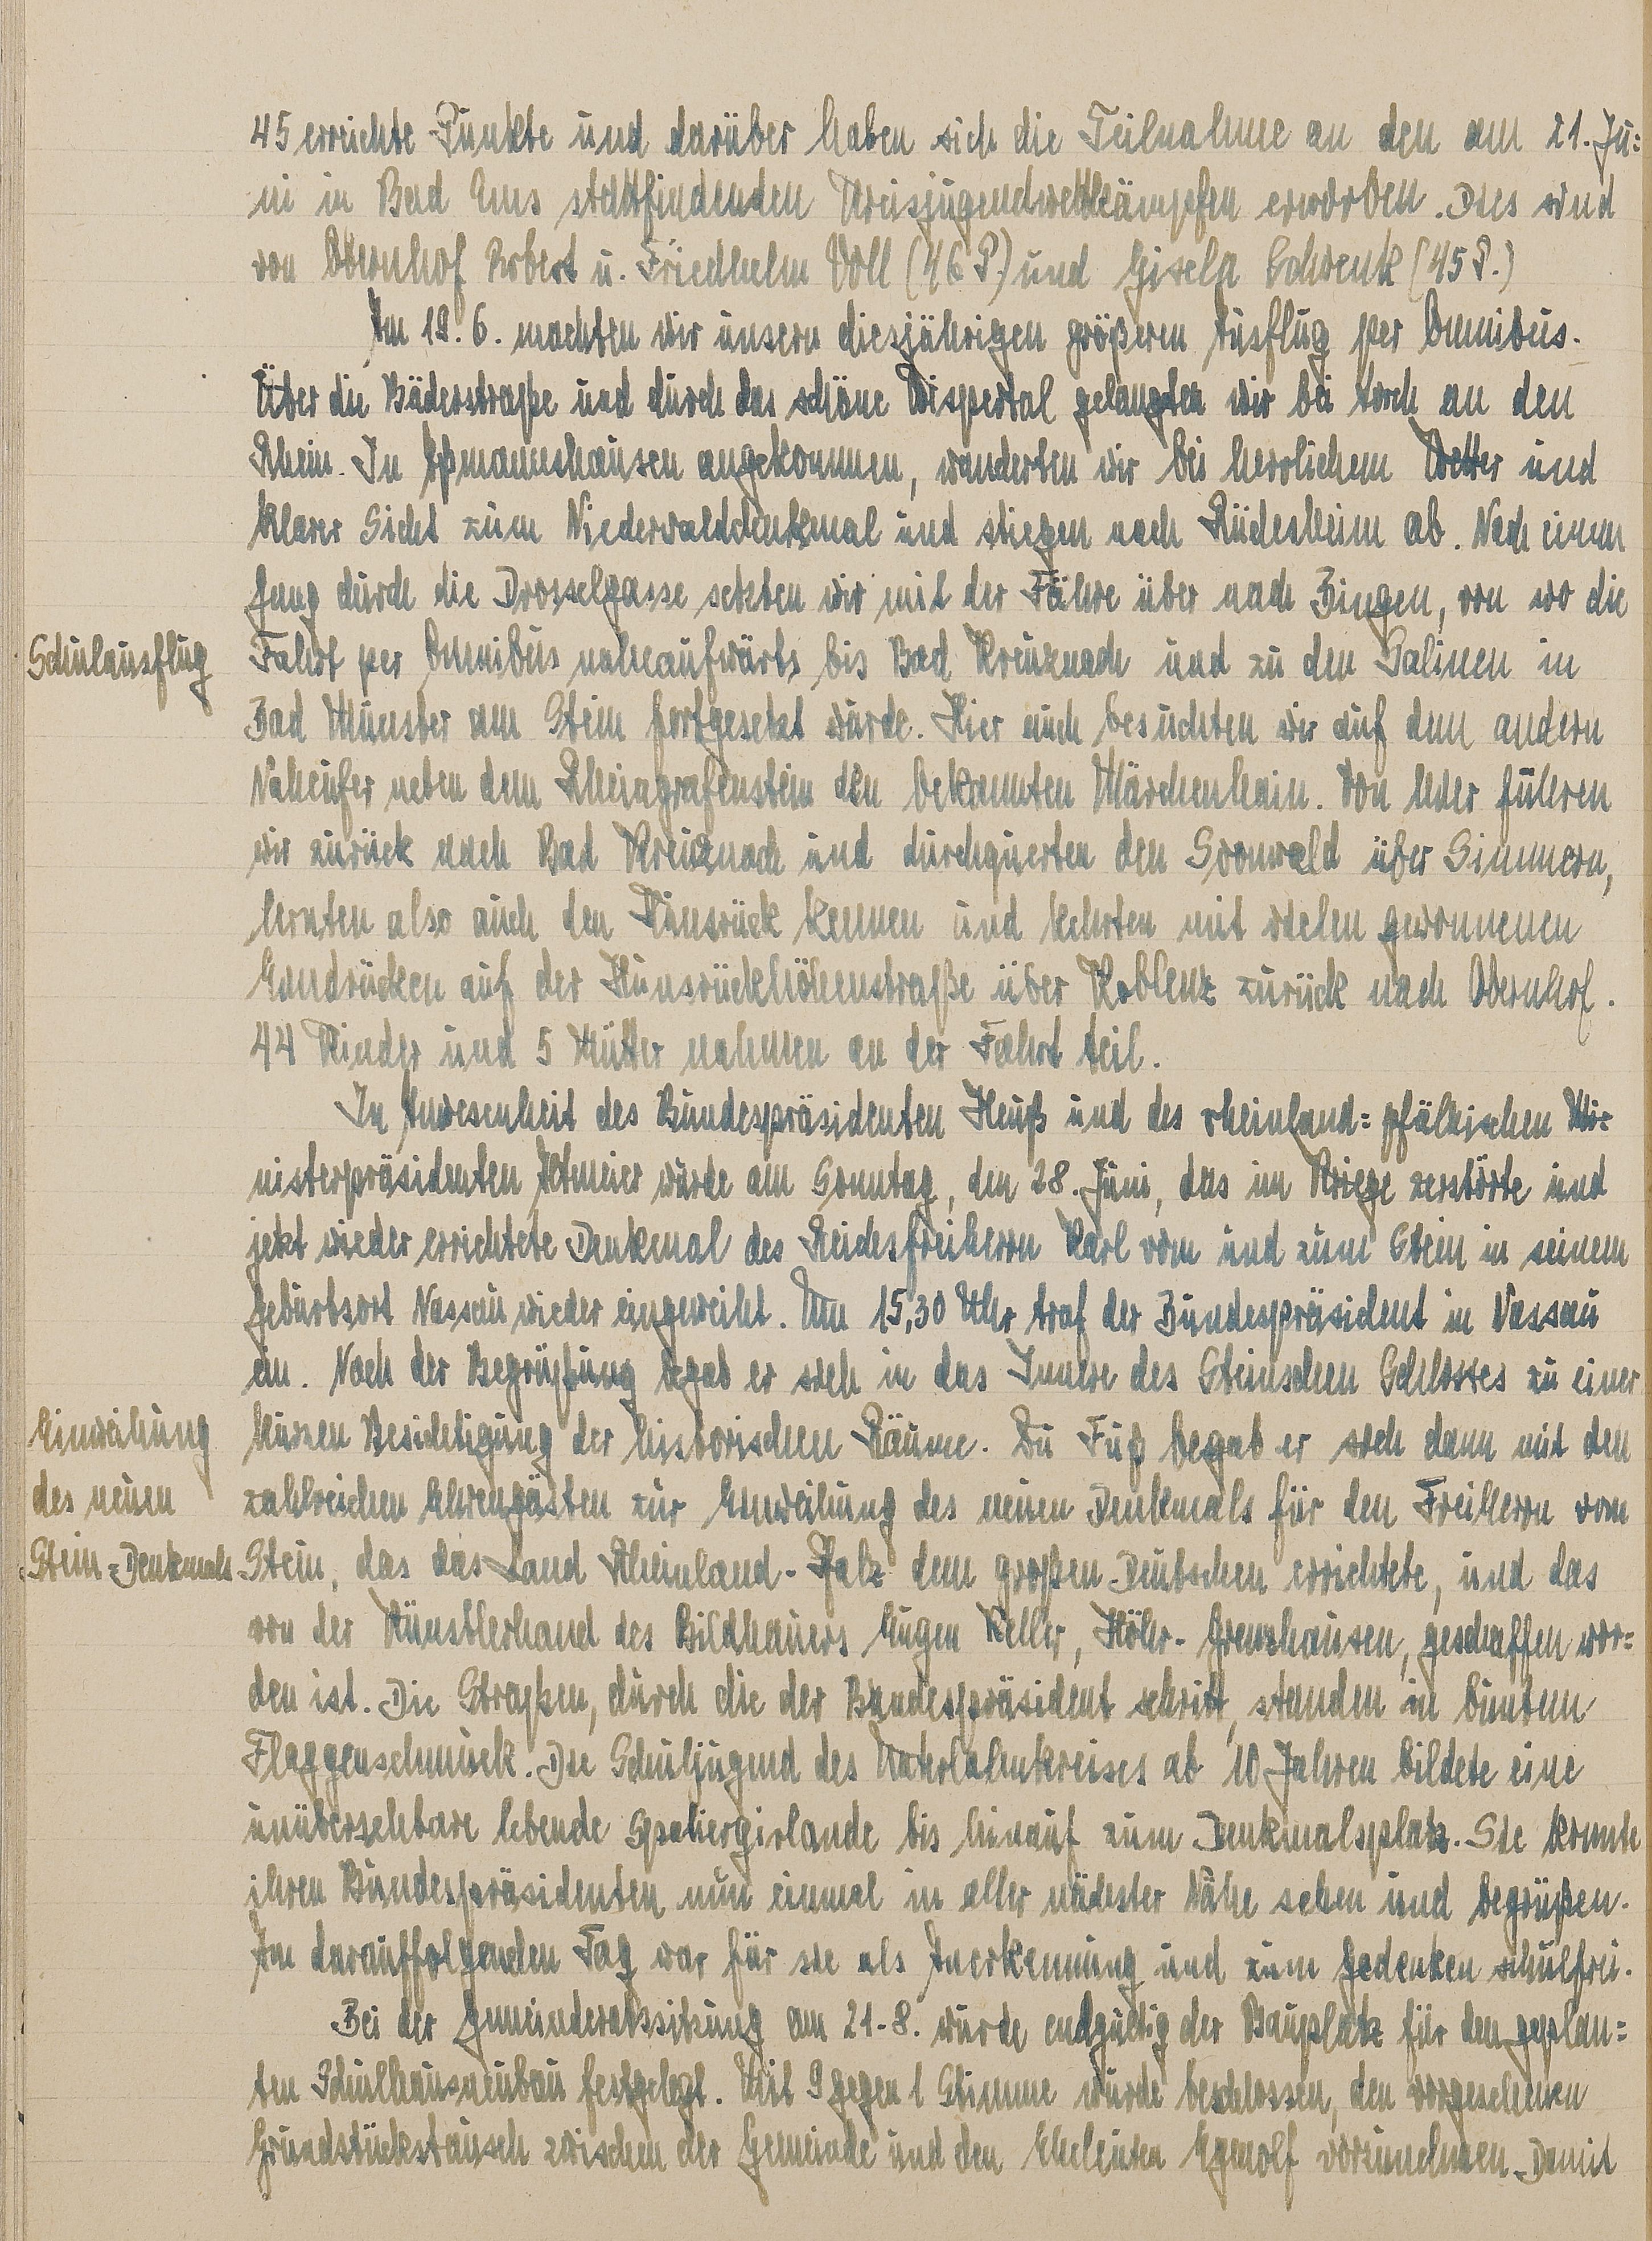 45 erreichte Punkte und darüber haben sich die Teilnahme an den am 21. Ju=
ni in Bad Ems stattfindenden Kreisjugendwettkämpfen erworben. Dies sind
von Obernhof Robert u. Friedhelm Voll (46 P.) und Gisela Schwenk (45 P.)
Am 19. 6. machten wir unsern diesjährigen größeren Ausflug per Omnibus.
Über die Bäderstraße und durch das schöne Wispertal gelangten wir bei Lorch an den
Rhein. In Aßmannshausen angekommen, wanderten wir bei herrlichem Wetter und
klarer Sicht zum Niederwalddenkmal und stiegen nach Rüdesheim ab. Nach einem
Gang durch die Drosselgasse setzten wir mit der Fähre über nach Bingen, von wo die
Schulausflug
Fahrt per Omnibus naheaufwärts bis Bad Kreuznach und zu den Salinen in
Bad Münster am Stein fortgesetzt wurde. Hier auch besuchten wir auf dem andern
Naheufer neben dem Rheingrafenstein den bekannten Märchenhain. Von hier fuhren
wir zurück nach Bad Kreuznach und durchquerten den Soonwald über Simmern,
lernten also auch den Hunsrück kennen und kehrten mit vielen gewonnenen
Eindrücken auf der Hunsrückhöhenstraße über Koblenz zurück nach Obernhof.
44 Kinder und 5 Mütter nahmen an der Fahrt teil.
In Anwesenheit des Bundespräsidenten Heuß und des rheinland=pfälzischen Mi=
nisterpräsidenten Altmeier wurde am Sonntag, den 28. Juni, das im Kriege zerstörte und
jetzt wieder errichtete Denkmal des Reichsfreiherrn Karl vom und zum Stein in seinem
Geburtsort Nassau wieder eingeweiht. Um 15,30 Uhr traf der Bundespräsident in Nassau
ein. Nach der Begrüßung begab er sich in das Innere des Steinschen Schlosses zu einer
Einweihung
des neuen
Stein-Denkmals
kurzen Besichtigung der historischen Räume. Zu Fuß begab er sich dann mit den
zahlreichen Ehrengästen zur Einweihung des neuen Denkmals für den Freiherrn vom
Stein, das das Land Rheinland-Pfalz dem großen Deutschen errichtete, und das
von der Künstlerhand des Bildhauers Eugen Keller, Höhr-Grenzhausen, geschaffen wor=
den ist. Die Straßen, durch die der Bundespräsident schritt, standen in buntem
Flaggenschmuck. Die Schuljugend des Unterlahnkreises ab 10 Jahren bildete eine
unübersehbare lebende Spaliergirlande bis hinauf zum Denkmalsplatz. Sie konnte
ihren Bundespräsidenten nun einmal in aller nächster Nähe sehen und begrüßen.
Am darauffolgenden Tag war für sie als Anerkennung und zum Gedenken schulfrei.
Bei der Gemeinderatssitzung am 21.8. wurde endgültig der Bauplatz für den geplan=
ten Schulhausneubau festgelegt. Mit 9 gegen 1 Stimme wurde beschlossen, den vorgesehenen
Grundstückstausch zwischen der Gemeinde und den Eheleuten Egenolf vorzunehmen. Damit